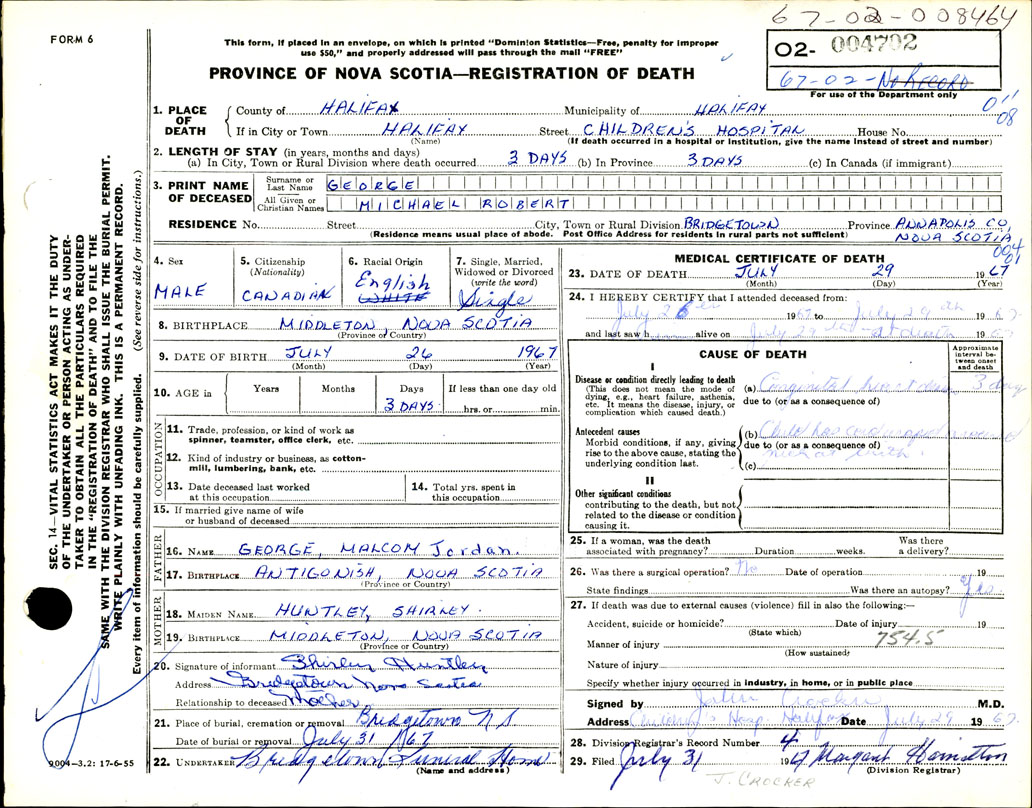 67-02-008464
FORM 6
This form, if placed in an envelope, on which is printed "Dominion Statistics—Free, penalty for improper
use $50," and properly addressed will pass through the mail "FREE"
O2- 004702
67-02-No Record
For use of the Department only
PROVINCE OF NOVA SCOTIA—REGISTRATION OF DEATH
011
08
1. PLACE OF DEATH
County of HALIFAX Municipality of HALIFAX
If in City or Town HALIFAX Street CHILDREN'S HOSPITAL House No.
(Name) (If death occurred in a hospital or institution, give the name instead of street and number)
2. LENGTH OF STAY (in years, months and days)
(a) In City, Town or Rural Division where death occurred 3 DAYS (b) In Province 3 DAYS (c) In Canada (if immigrant)
3. PRINT NAME OF DECEASED
Surname or Last Name GEORGE
All Given or Christian Names MICHAEL ROBERT
RESIDENCE No. Street City, Town or Rural Division BRIDGETOWN Province ANNAPOLIS CO,
(Residence means usual place of abode. Post Office Address for residents in rural parts not sufficient) NOVA SCOTIA
004
01
4. Sex
MALE
5. Citizenship
(Nationality)
CANADIAN
6. Racial Origin
English
WHITE
7. Single, Married,
Widowed or Divorced
(write the word)
Single
8. BIRTHPLACE MIDDLETON, NOVA SCOTIA
(Province or Country)
9. DATE OF BIRTH JULY 26 1967
(Month) (Day) (Year)
10. AGE in
Years
Months
Days
3 DAYS
If less than one day old
hrs. or min.
OCCUPATION
11. Trade, profession, or kind of work as
spinner, teamster, office clerk, etc.
12. Kind of industry or business, as cotton-
mill, lumbering, bank, etc.
13. Date deceased last worked
at this occupation
14. Total yrs. spent in
this occupation
15. If married give name of wife
or husband of deceased
FATHER
16. NAME GEORGE, MALCOM Jordan.
17. BIRTHPLACE ANTIGONISH, NOVA SCOTIA
(Province or Country)
MOTHER
18. MAIDEN NAME HUNTLEY, SHIRLEY.
19. BIRTHPLACE MIDDLETON, NOVA SCOTIA
(Province or Country)
20. Signature of informant Shirley Huntley
Address Bridgetown Nova Scotia
Relationship to deceased Mother
21. Place of burial, cremation or removal Bridgetown N S
Date of burial or removal July 31 1967
22. UNDERTAKER Bridgetown Funeral Home
(Name and address)
9004—3.2: 17-6-55
MEDICAL CERTIFICATE OF DEATH
23. DATE OF DEATH JULY 29 1967
(Month) (Day) (Year)
24. I HEREBY CERTIFY that I attended deceased from:
July 26 1967 to July 29th 1967
and last saw h alive on July 29 at death 1967
CAUSE OF DEATH
Approximate
interval be-
tween onset
and death
I
Disease or condition directly leading to death
(This does not mean the mode of
dying, e.g., heart failure, asthenia,
etc. It means the disease, injury, or
complication which caused death.)
(a) Congenital heart 3 days
due to (or as a consequence of)
Antecedent causes
Morbid conditions, if any, giving
rise to the above cause, stating the
underlying condition last.
(b) Child has cord wrapped around
due to (or as a consequence of)
neck at birth.
(c)
II
Other significant conditions
contributing to the death, but not
related to the disease or condition
causing it.
25. If a woman, was the death
associated with pregnancy? Duration weeks.
Was there
a delivery?
26. Was there a surgical operation? No Date of operation 19
State findings Was there an autopsy? Yes
27. If death was due to external causes (violence) fill in also the following:—
Accident, suicide or homicide? Date of injury 19
(State which)
Manner of injury 754.5
(How sustained)
Nature of injury
Specify whether injury occurred in industry, in home, or in public place
Signed by John Crocker M.D.
Address Children's Hosp. Halifax Date July 29 1967.
28. Division Registrar's Record Number 4
29. Filed July 31 1967 Margaret Hamilton
(Division Registrar)
J. CROCKER
SEC. 14—VITAL STATISTICS ACT MAKES IT THE DUTY
OF THE UNDERTAKER OR PERSON ACTING AS UNDER-
TAKER TO OBTAIN ALL THE PARTICULARS REQUIRED
IN THE "REGISTRATION OF DEATH" AND TO FILE THE
SAME WITH THE DIVISION REGISTRAR WHO SHALL ISSUE THE BURIAL PERMIT.
WRITE PLAINLY WITH UNFADING INK. THIS IS A PERMANENT RECORD.
Every item of information should be carefully supplied. (See reverse side for instructions.)